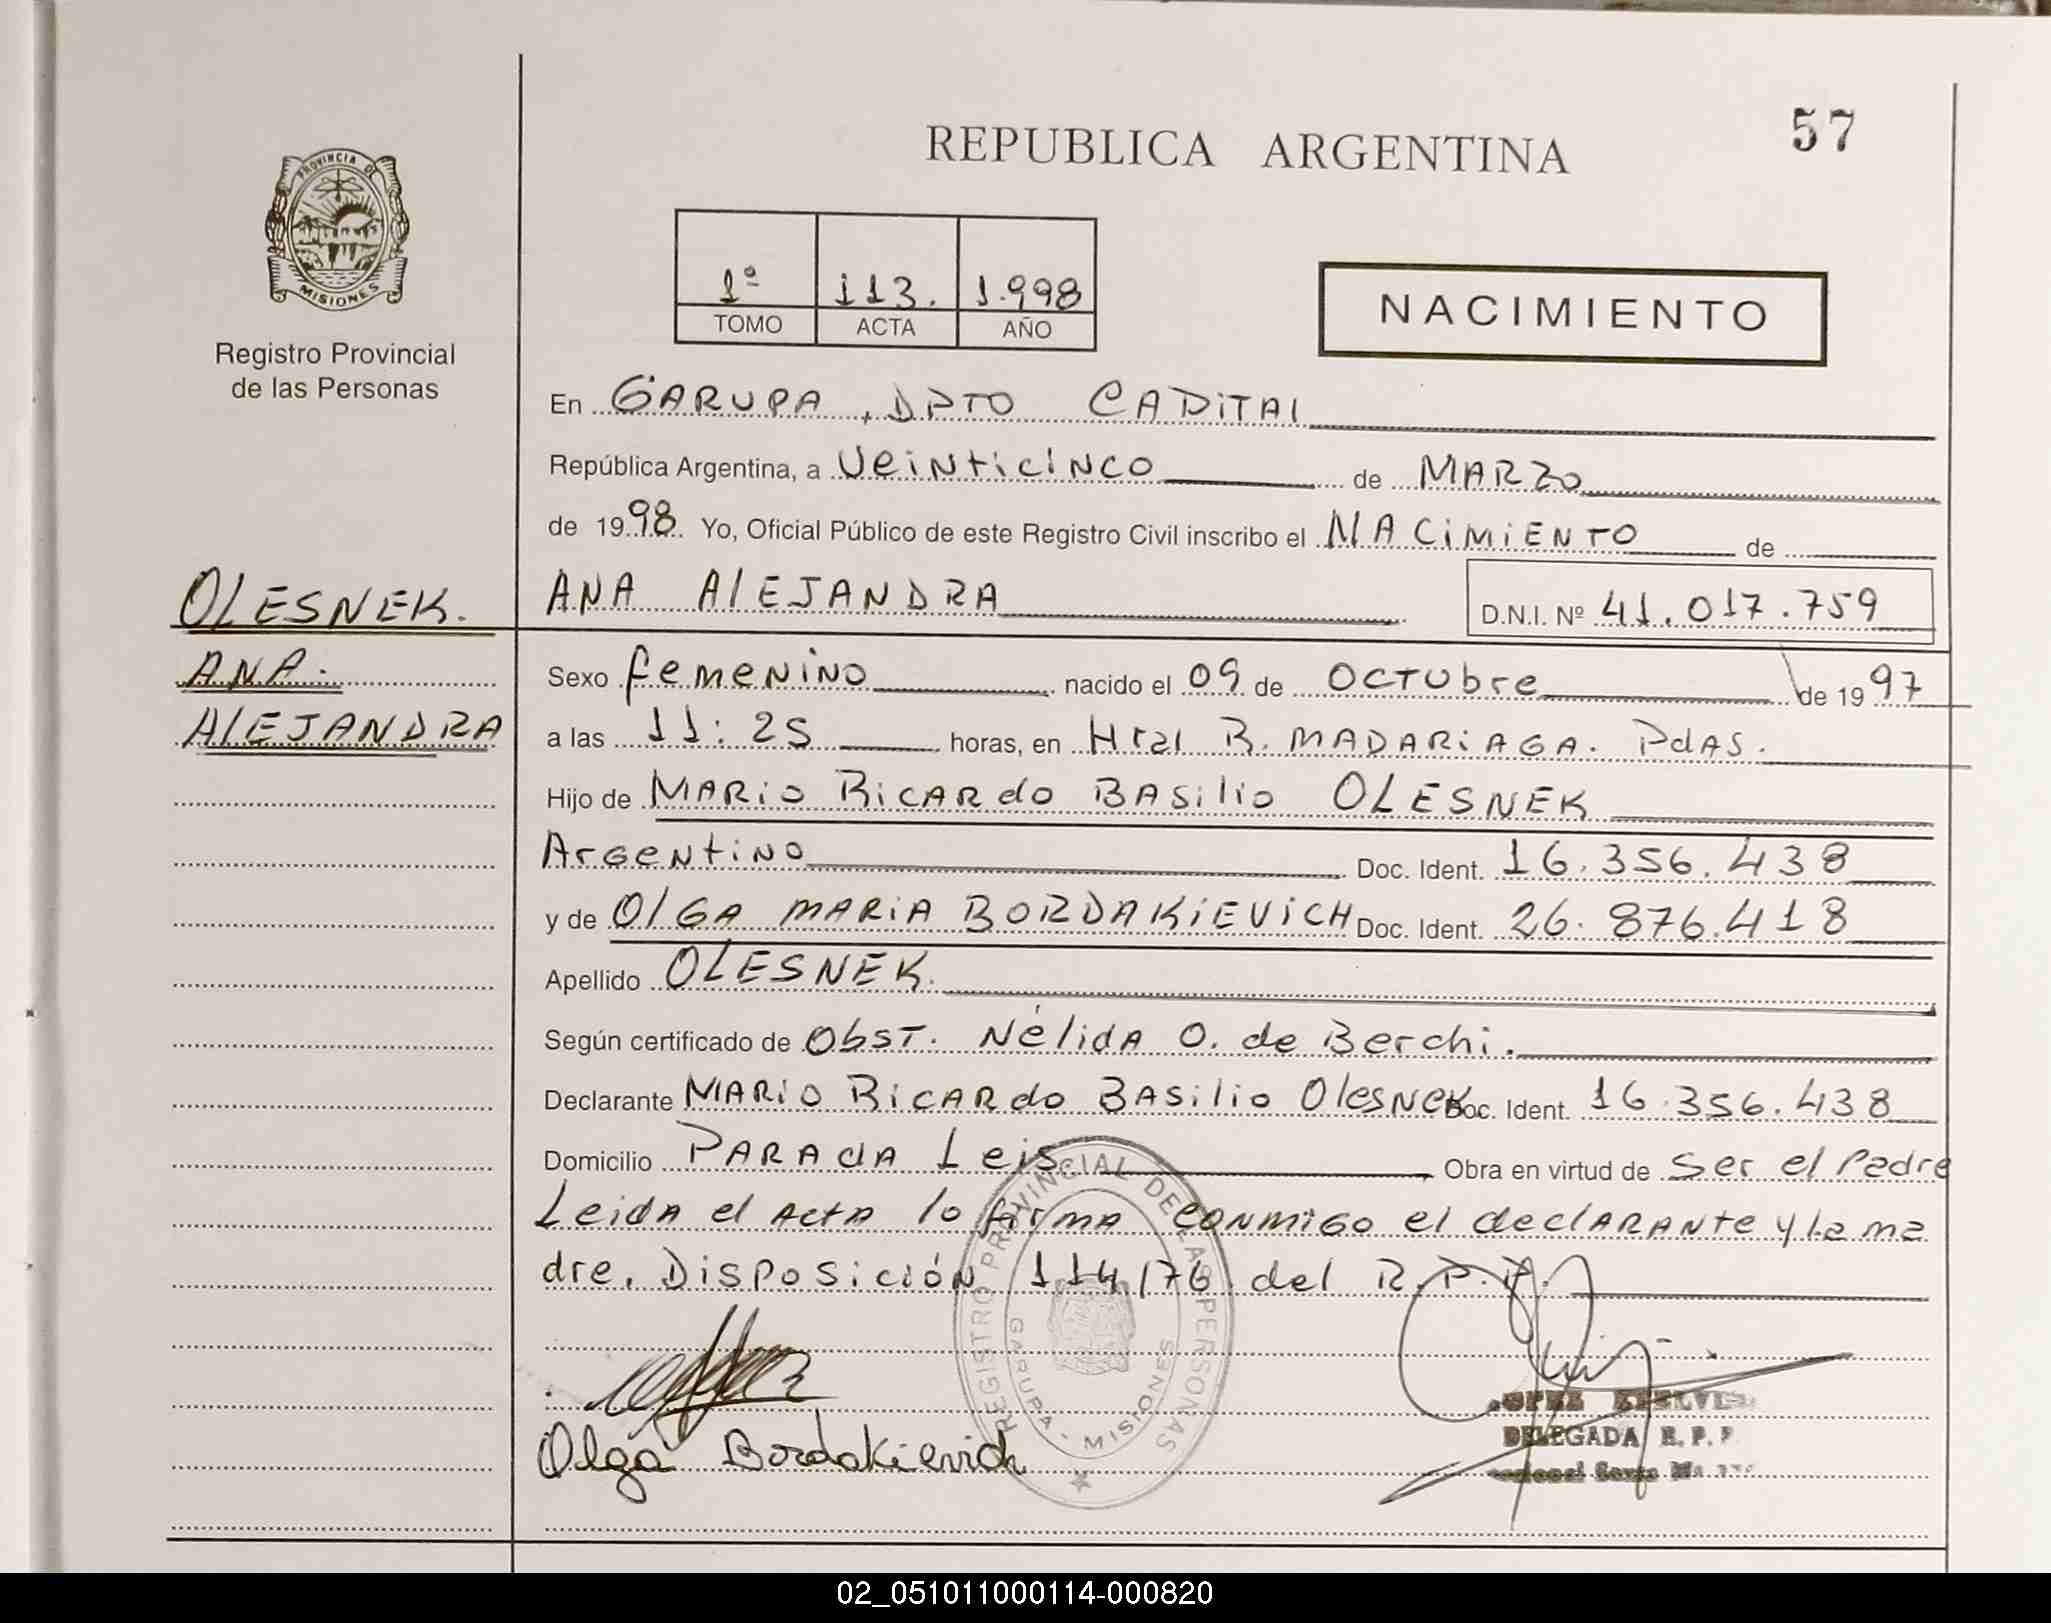 57
REPUBLICA ARGENTINA
PROVINCIA DE
MISIONES
Registro Provincial
de las Personas
1º 113. 1.998
TOMO ACTA AÑO
NACIMIENTO
En GARUPA, DPTO CAPITAl
República Argentina, a VeiNticiNco de MARZO
de 1998 Yo, Oficial Público de este Registro Civil inscribo el NACiMiENTO de
OLESNEK.
ANA AlEJANDRA D.N.I. Nº 41.017.759
ANA.
ALEJANDRA
Sexo femeNiNO nacido el 09 de OCTUbre de 1997
a las 11:25 horas, en Htal R. MADARiAGA. PdAS.
Hijo de MARiO RiCARdo BASilio OLESNEK
ArgeNtiNO Doc. Ident. 16.356.438
y de OlGA MARiA BORDAKiEViCH Doc. Ident. 26.876.418
Apellido OLESNEK.
Según certificado de ObST. NélidA O. de Berchi.
Declarante MARiO RiCARdo BASilio OlesNek Doc. Ident. 16.356.438
Domicilio PARAdA Leis Obra en virtud de Ser el Padre
LeidA el ActA lo firMA CONMiGO el declARANte y la ma
dre. DiSPoSición 114/76 del R.P.P.
REGISTRO PROVINCIAL DE LAS PERSONAS
GARUPA - MISIONES
Olga Bordakievich
DELEGADA R.P.P
02_051011000114-000820